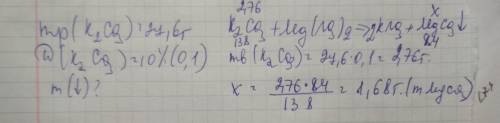 mр(K₂CO₃)=27,6г
ω(K₂CO₃)=10%(0,1)
m(↓)?
2,76 x
K₂CO₃+Mg(NO₃)₂→2KNO₃+MgCO₃↓
138 84
mв(K₂CO₃)=27,6·0,1=2,76г.
x = 2,76·84 / 138 = 1,68г.(m MgCO₃)